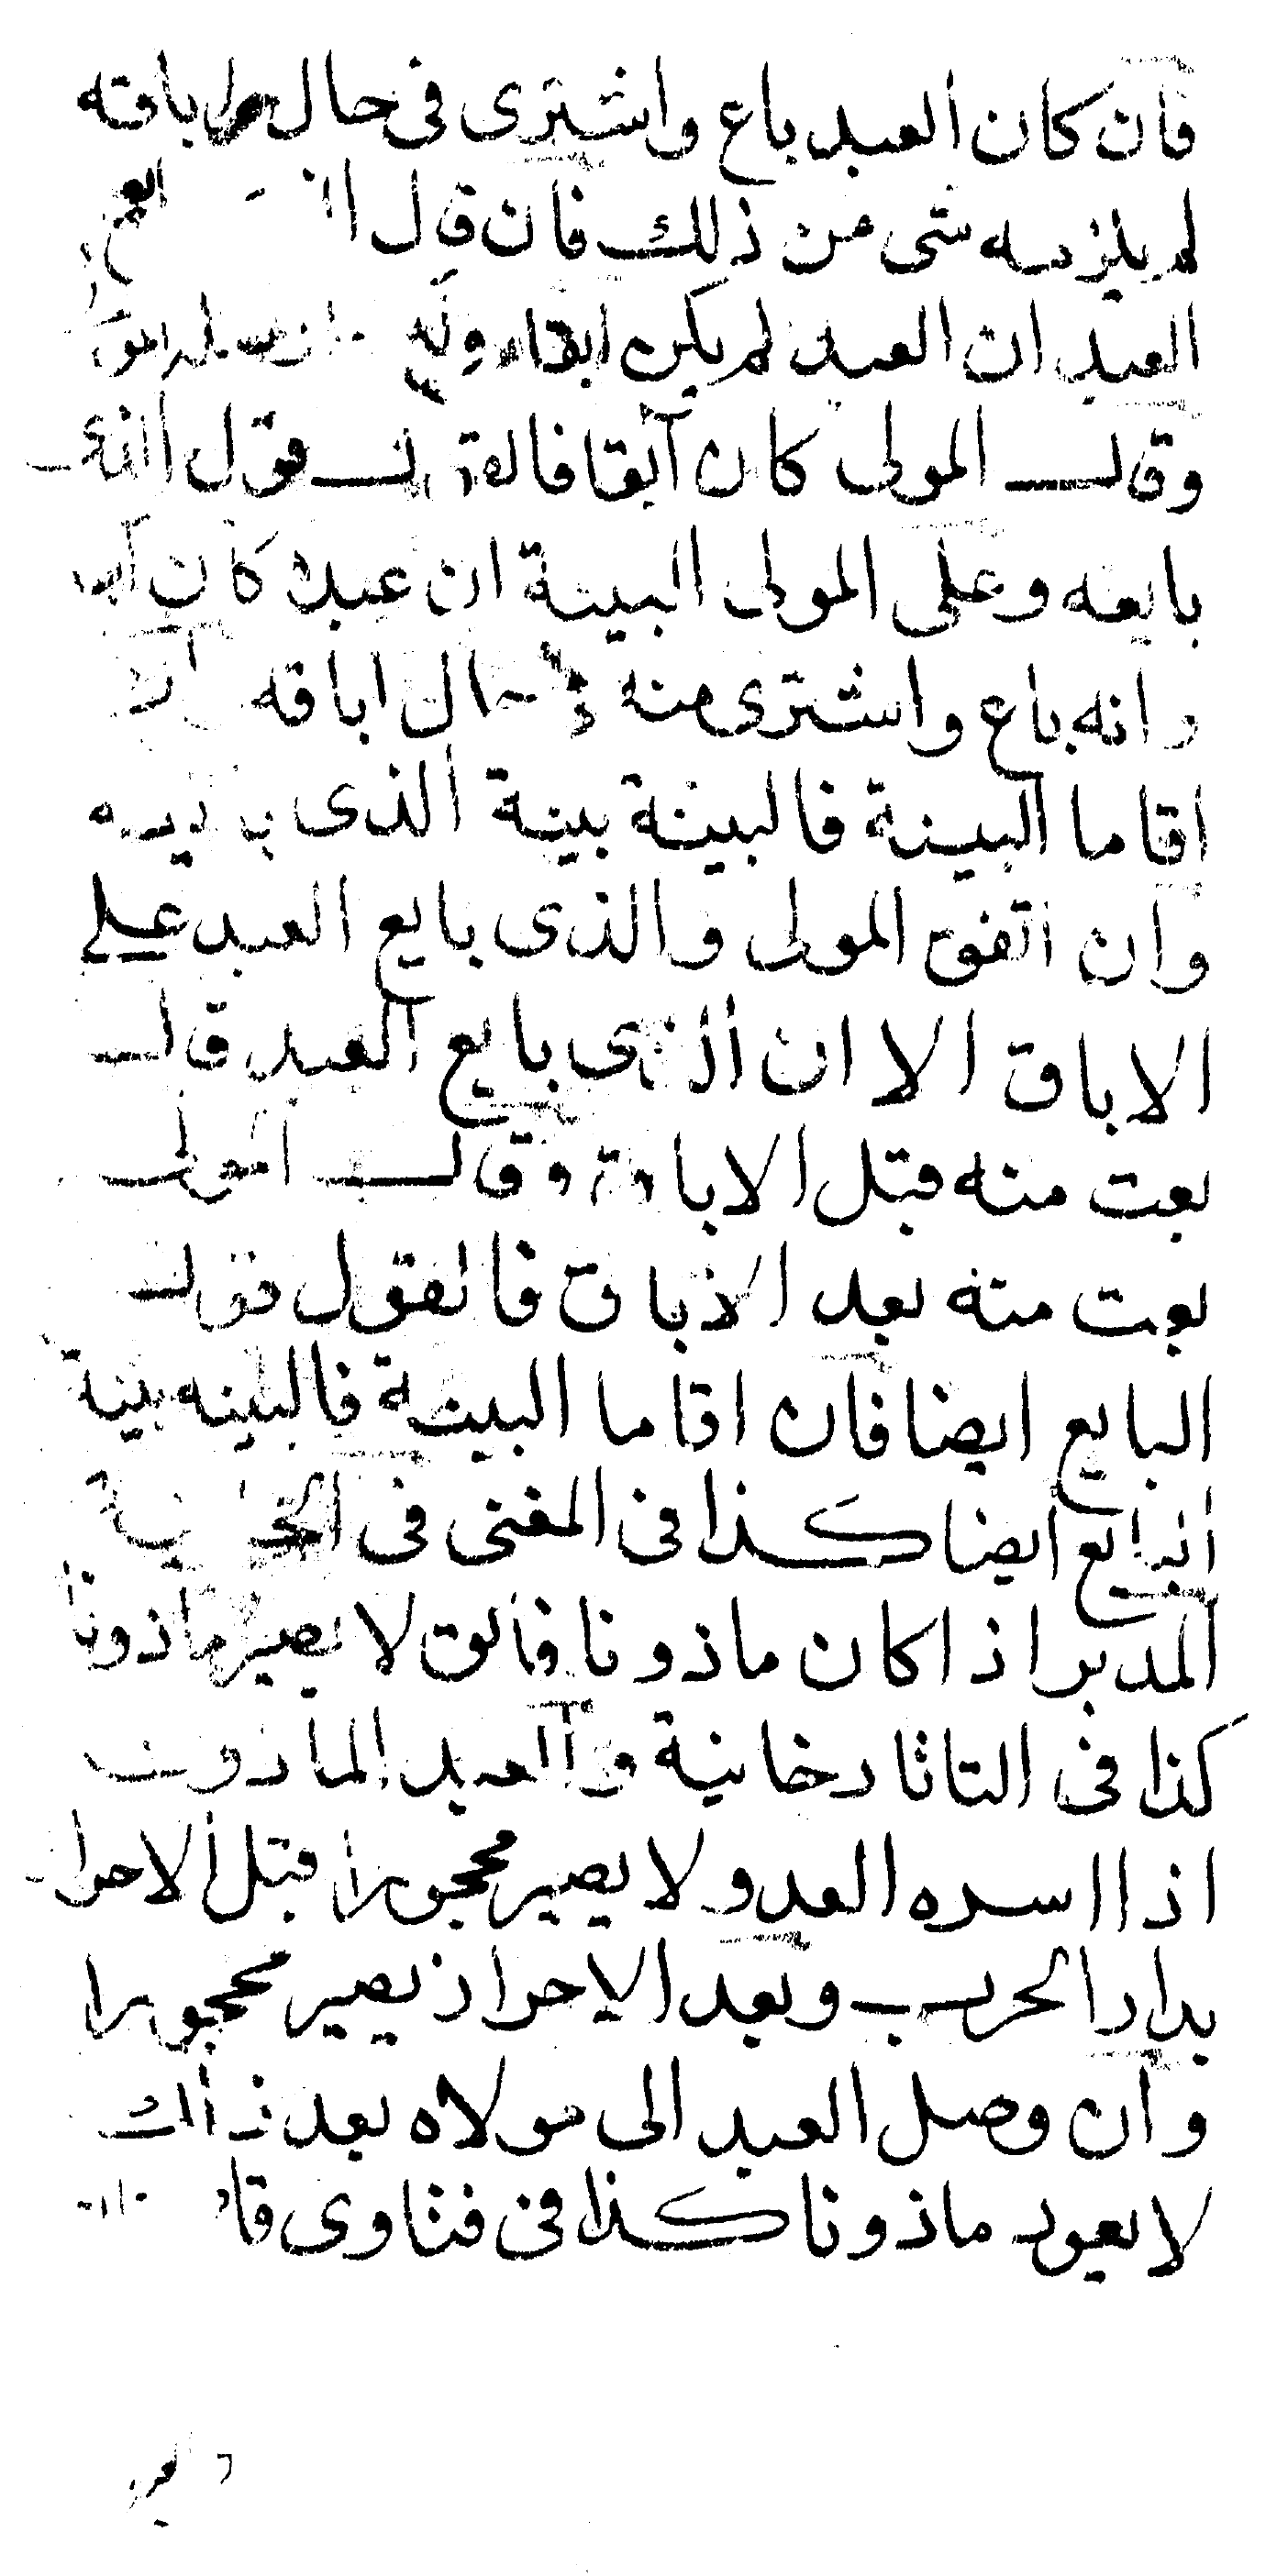 فان كان العبد باع واشترى فى حال اباقته
لم يلزمه شى من ذلك فان قال
العبد ان العبد لم يكن ابقا
وقال المولى كان آبقا فالقول قول الذى
بايعه وعلى المولى البينة ان عبده كان
وانه باع واشترى منه حال اباقه
اقاما البينة فالبينة بينة الذى
وان اتفق المولى والذى بايع العبد على
الاباق الا ان الذى بايع العبد قال
بعت منه قبل الاباق وقال المولى
بعت منه بعد الاباق فالقول قول
البايع ايضا فان اقاما البينة فالبينه بينة
البايع ايضا كذا فى المغنى فى
المدبر اذا كان ماذونا فابق لا يصير ماذونا
كذا فى التاتارخانية والعبد الماذون
اذا اسره العدو لا يصير محجورا قبل الاحراز
بدار الحرب وبعد الاحراز يصير محجورا
وان وصل العبد الى مولاه بعد ذلك
لا يعود ماذونا كذا فى فتاوى